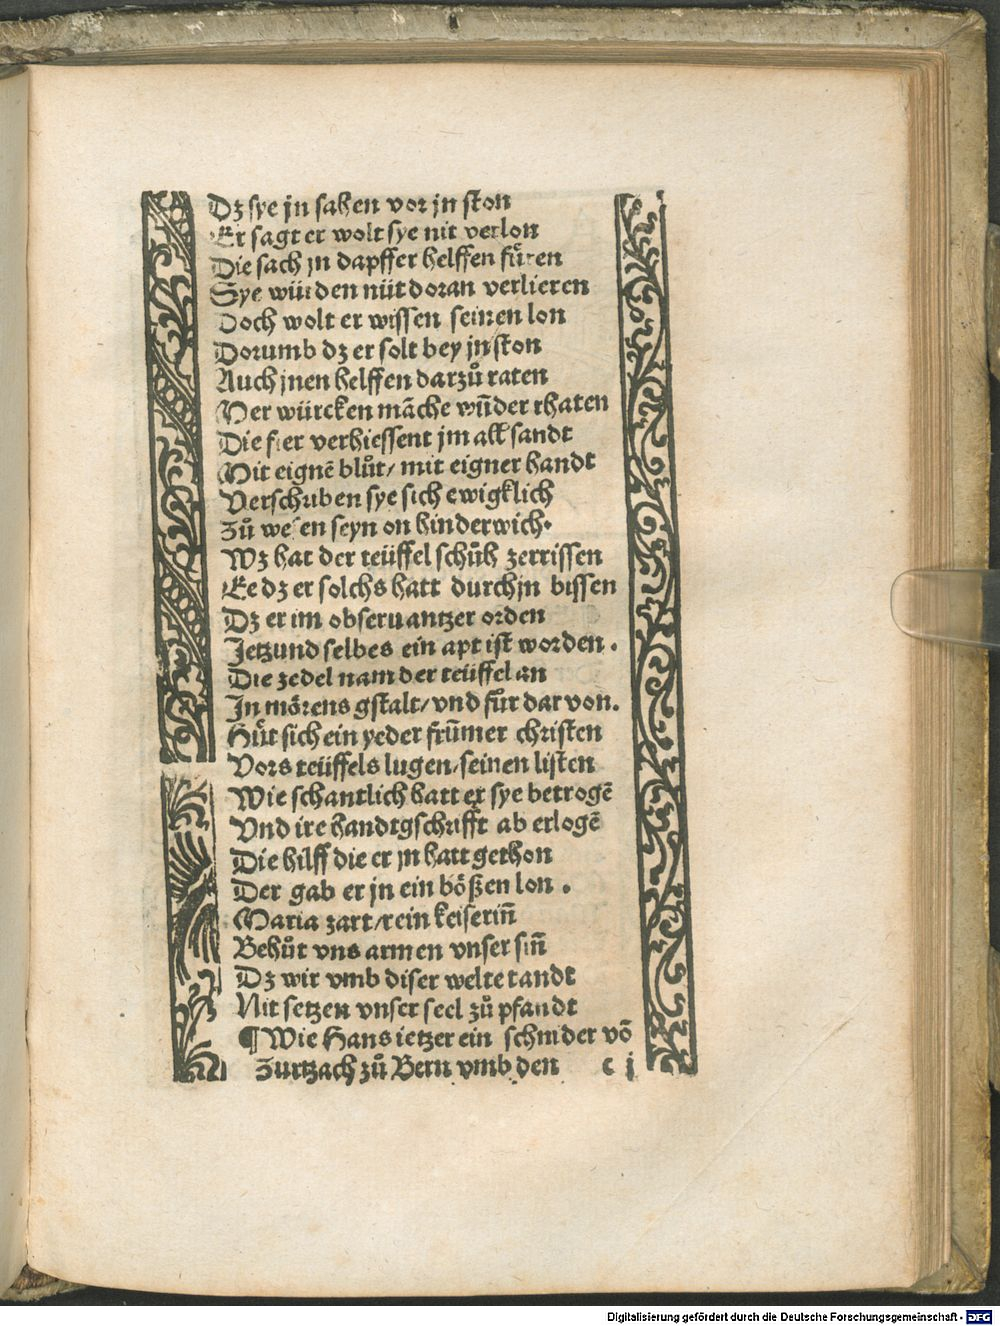 Dz sye jn sahen vor jn ston
Er sagt er wolt sye nit verlon
Die sach jn dapffer helffen fuͤren
Sye würden nüt doran verlieren
Doch wolt er wissen seinen lon
Dorumb dz er solt bey jn ston
Auch jnen helffen darzuͦ raten
Mer würcken mãche wũder thaten
Die fier verhiessent jm all sandt
Mit eignẽ bluͦt/ mit eigner handt
Verschuben sye sich ewigklich
Zuͦ wesen seyn on hinderwich.
Wz hat der teüffel schuͦh zerrissen
Ee dz er solchs hatt durchjn bissen
Dz er im obseruantzer orden
Jetzund selbes ein apt ist worden.
Die zedel nam der teüffel an
In mörens gstalt/ vnd fuͦr dar von.
Huͤt sich ein yeder frũmer christen
Vors teüffels lugen/ seinen listen
Wie schantlich hatt er sye betrogẽ
Vnd ire handtgschrifft ab erlogẽ
Die hilff die er jn hatt gethon
Der gab er jn ein bößen lon.
Maria zart/ rein keiserin̄
Behuͤt vns armen vnser sin̄
Dz wir vmb diser welte tandt
Nit setzen vnser seel zuͦ pfandt
¶ Wie Hans ietzer ein schnider võ
Zurtzach zuͦ Bern vmb den c j
Digitalisierung gefördert durch die Deutsche Forschungsgemeinschaft - DFG